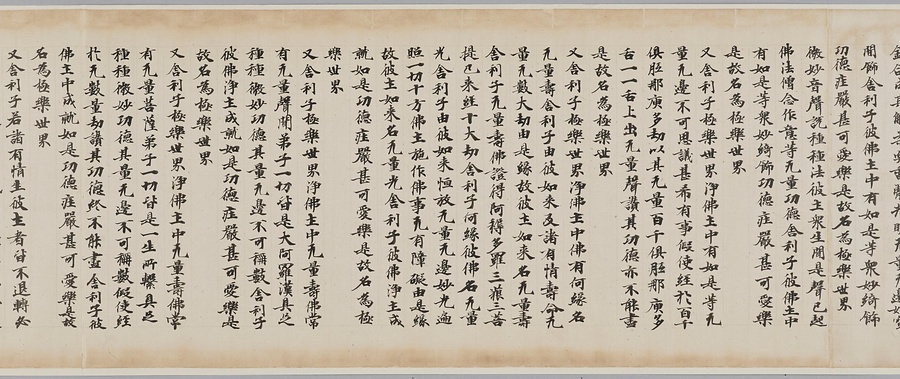 間飾舍利子彼佛土中有如是等衆妙綺飾
功德莊嚴甚可愛樂是故名為極樂世界
微妙音聲説種種法彼土衆生聞是聲已起
佛法僧念作意等无量功德舍利子彼佛土中
有如是等衆妙綺飾功德莊嚴甚可愛樂
是故名為極樂世界
又舍利子極樂世界淨佛土中有如是等无
量无邊不可思議甚希有事假使經於百千
俱胝那庾多劫以其无量百千俱胝那庾多
舌一一舌上出无量聲讚其功德亦不能盡
是故名為極樂世界
又舍利子極樂世界淨佛土中佛有何緣名
无量壽舍利子由彼如来及諸有情壽命无
量无數大劫由是緣故彼土如来名无量壽
舍利子无量壽佛證得阿耨多羅三藐三菩
提已来經十大劫舍利子何緣彼佛名无量
光舍利子由彼如来恒放无量无邊妙光遍
照一切十方佛土施作佛事无有障礙由是緣
故彼土如来名无量光舍利子彼佛淨土成
就如是功德莊嚴甚可愛樂是故名為極
樂世界
又舍利子極樂世界淨佛土中无量壽佛常
有无量聲聞弟子一切皆是大阿羅漢具足
種種微妙功德其量无邊不可稱數舍利子
彼佛淨土成就如是功德莊嚴甚可愛樂是
故名為極樂世界
又舍利子極樂世界淨佛土中无量壽佛常
有无量菩薩弟子一切皆是一生所繫具足
種種微妙功德其量无邊不可稱數假使經
於无數量劫讚其功德終不能盡舍利子彼
佛土中成就如是功德莊嚴甚可愛樂是故
名為極樂世界
又舍利子若諸有情生彼土者皆不退轉必